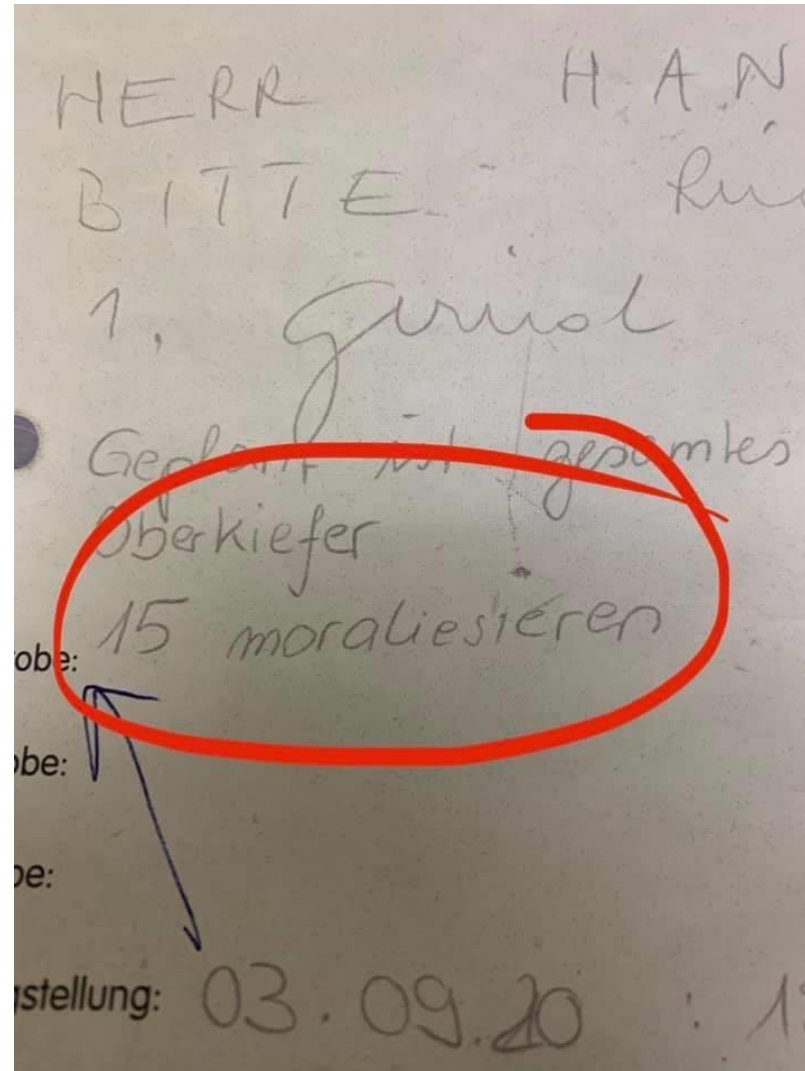 HERR H.A.N
BITTE
1. Gerüst
Geplant ist gesamtes
Oberkiefer
15 moraliesieren
obe:
obe:
be:
gstellung: 03.09.20 : 1